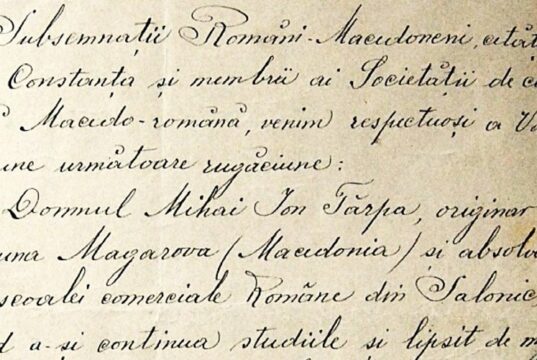 Subsemnații Români-Macedoneni, cetăț
Constanța și membrii ai Societății de cu
Macedo-română, venim respectuoși a V
une următoare rugăciune:
Domnul Mihai Ion Tărpa, originar
una Magarova (Macedonia) și absolv
școalei comerciale Române din Salonic,
d a-și continua studiile și lipsit de m